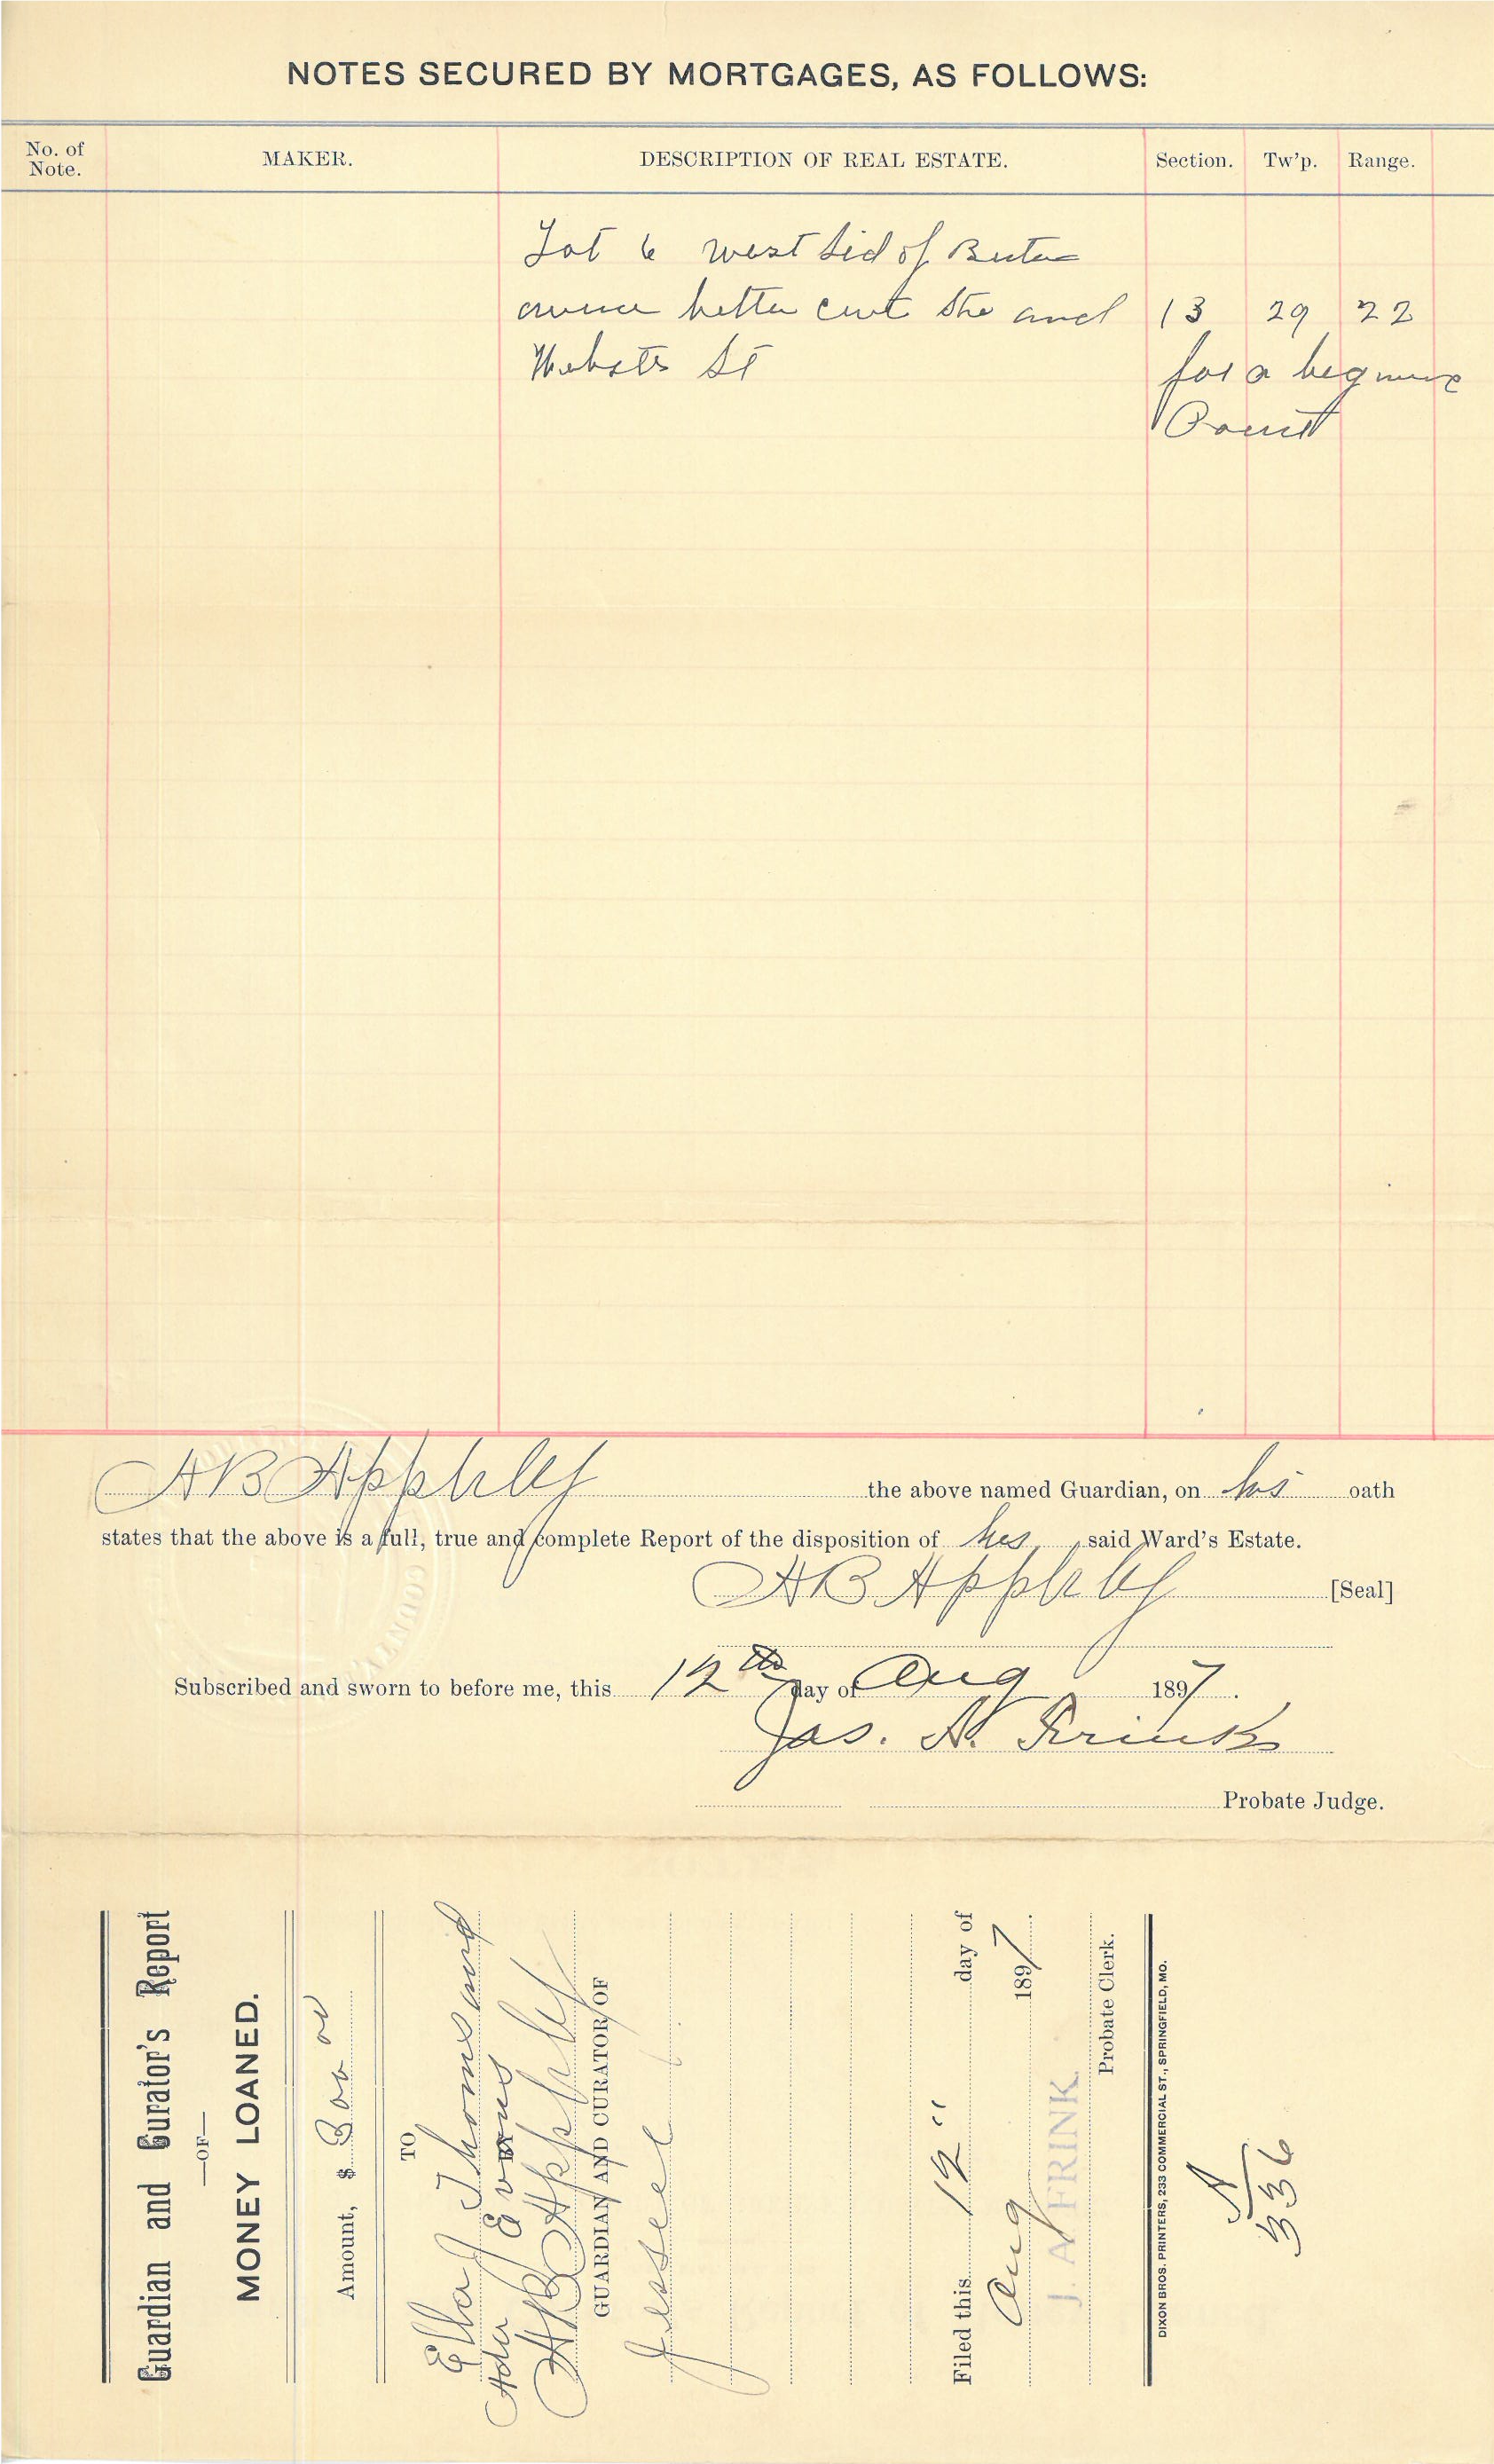 NOTES SECURED BY MORTGAGES, AS FOLLOWS:
No. of Note. MAKER. DESCRIPTION OF REAL ESTATE. Section. Tw'p. Range.
Lot 6 west Sid of
and 13 29 22
St for a
A B Appleby the above named Guardian, on his oath
states that the above is a full, true and complete Report of the disposition of his said Ward's Estate.
A B Appleby [Seal]
Subscribed and sworn to before me, this 12th day of Aug 1897.
Jas. A. Frink
Probate Judge.
Guardian and Curator's Report
—OF—
MONEY LOANED.
Amount, $ 300 00
TO
Ella J Thomas and
Ada Evans
A B Appleby
GUARDIAN AND CURATOR OF
Filed this 12 " day of
Aug 1897.
J. A. FRINK
Probate Clerk.
DIXON BROS. PRINTERS, 233 COMMERCIAL ST., SPRINGFIELD, MO.
A
336